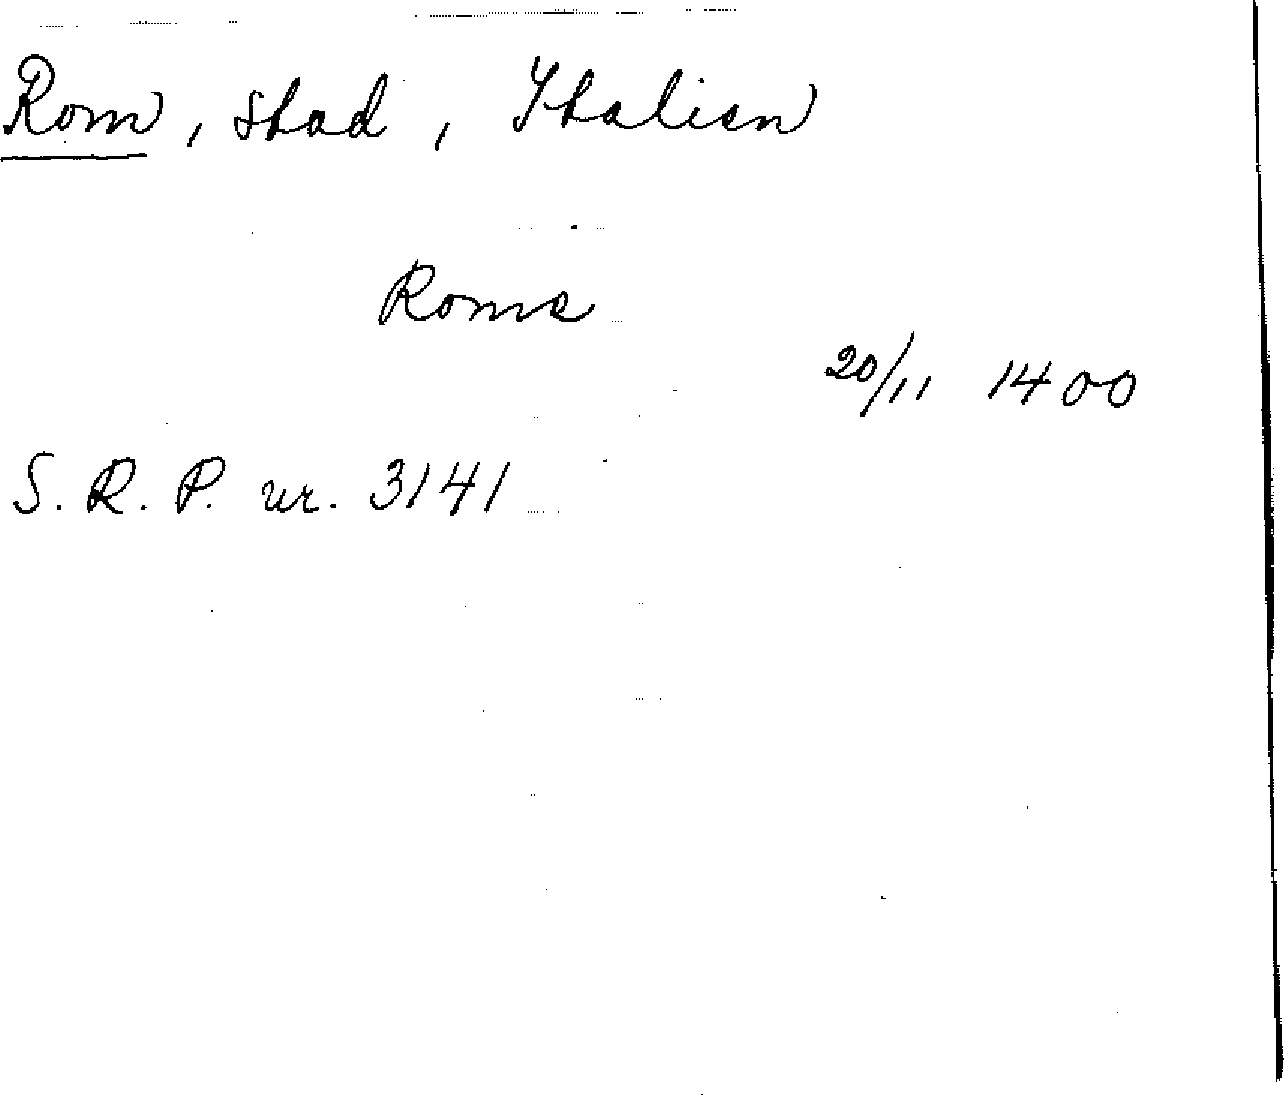 Rom, stad, Italien
Rome
20/11 1400
S. R. P. nr. 3141